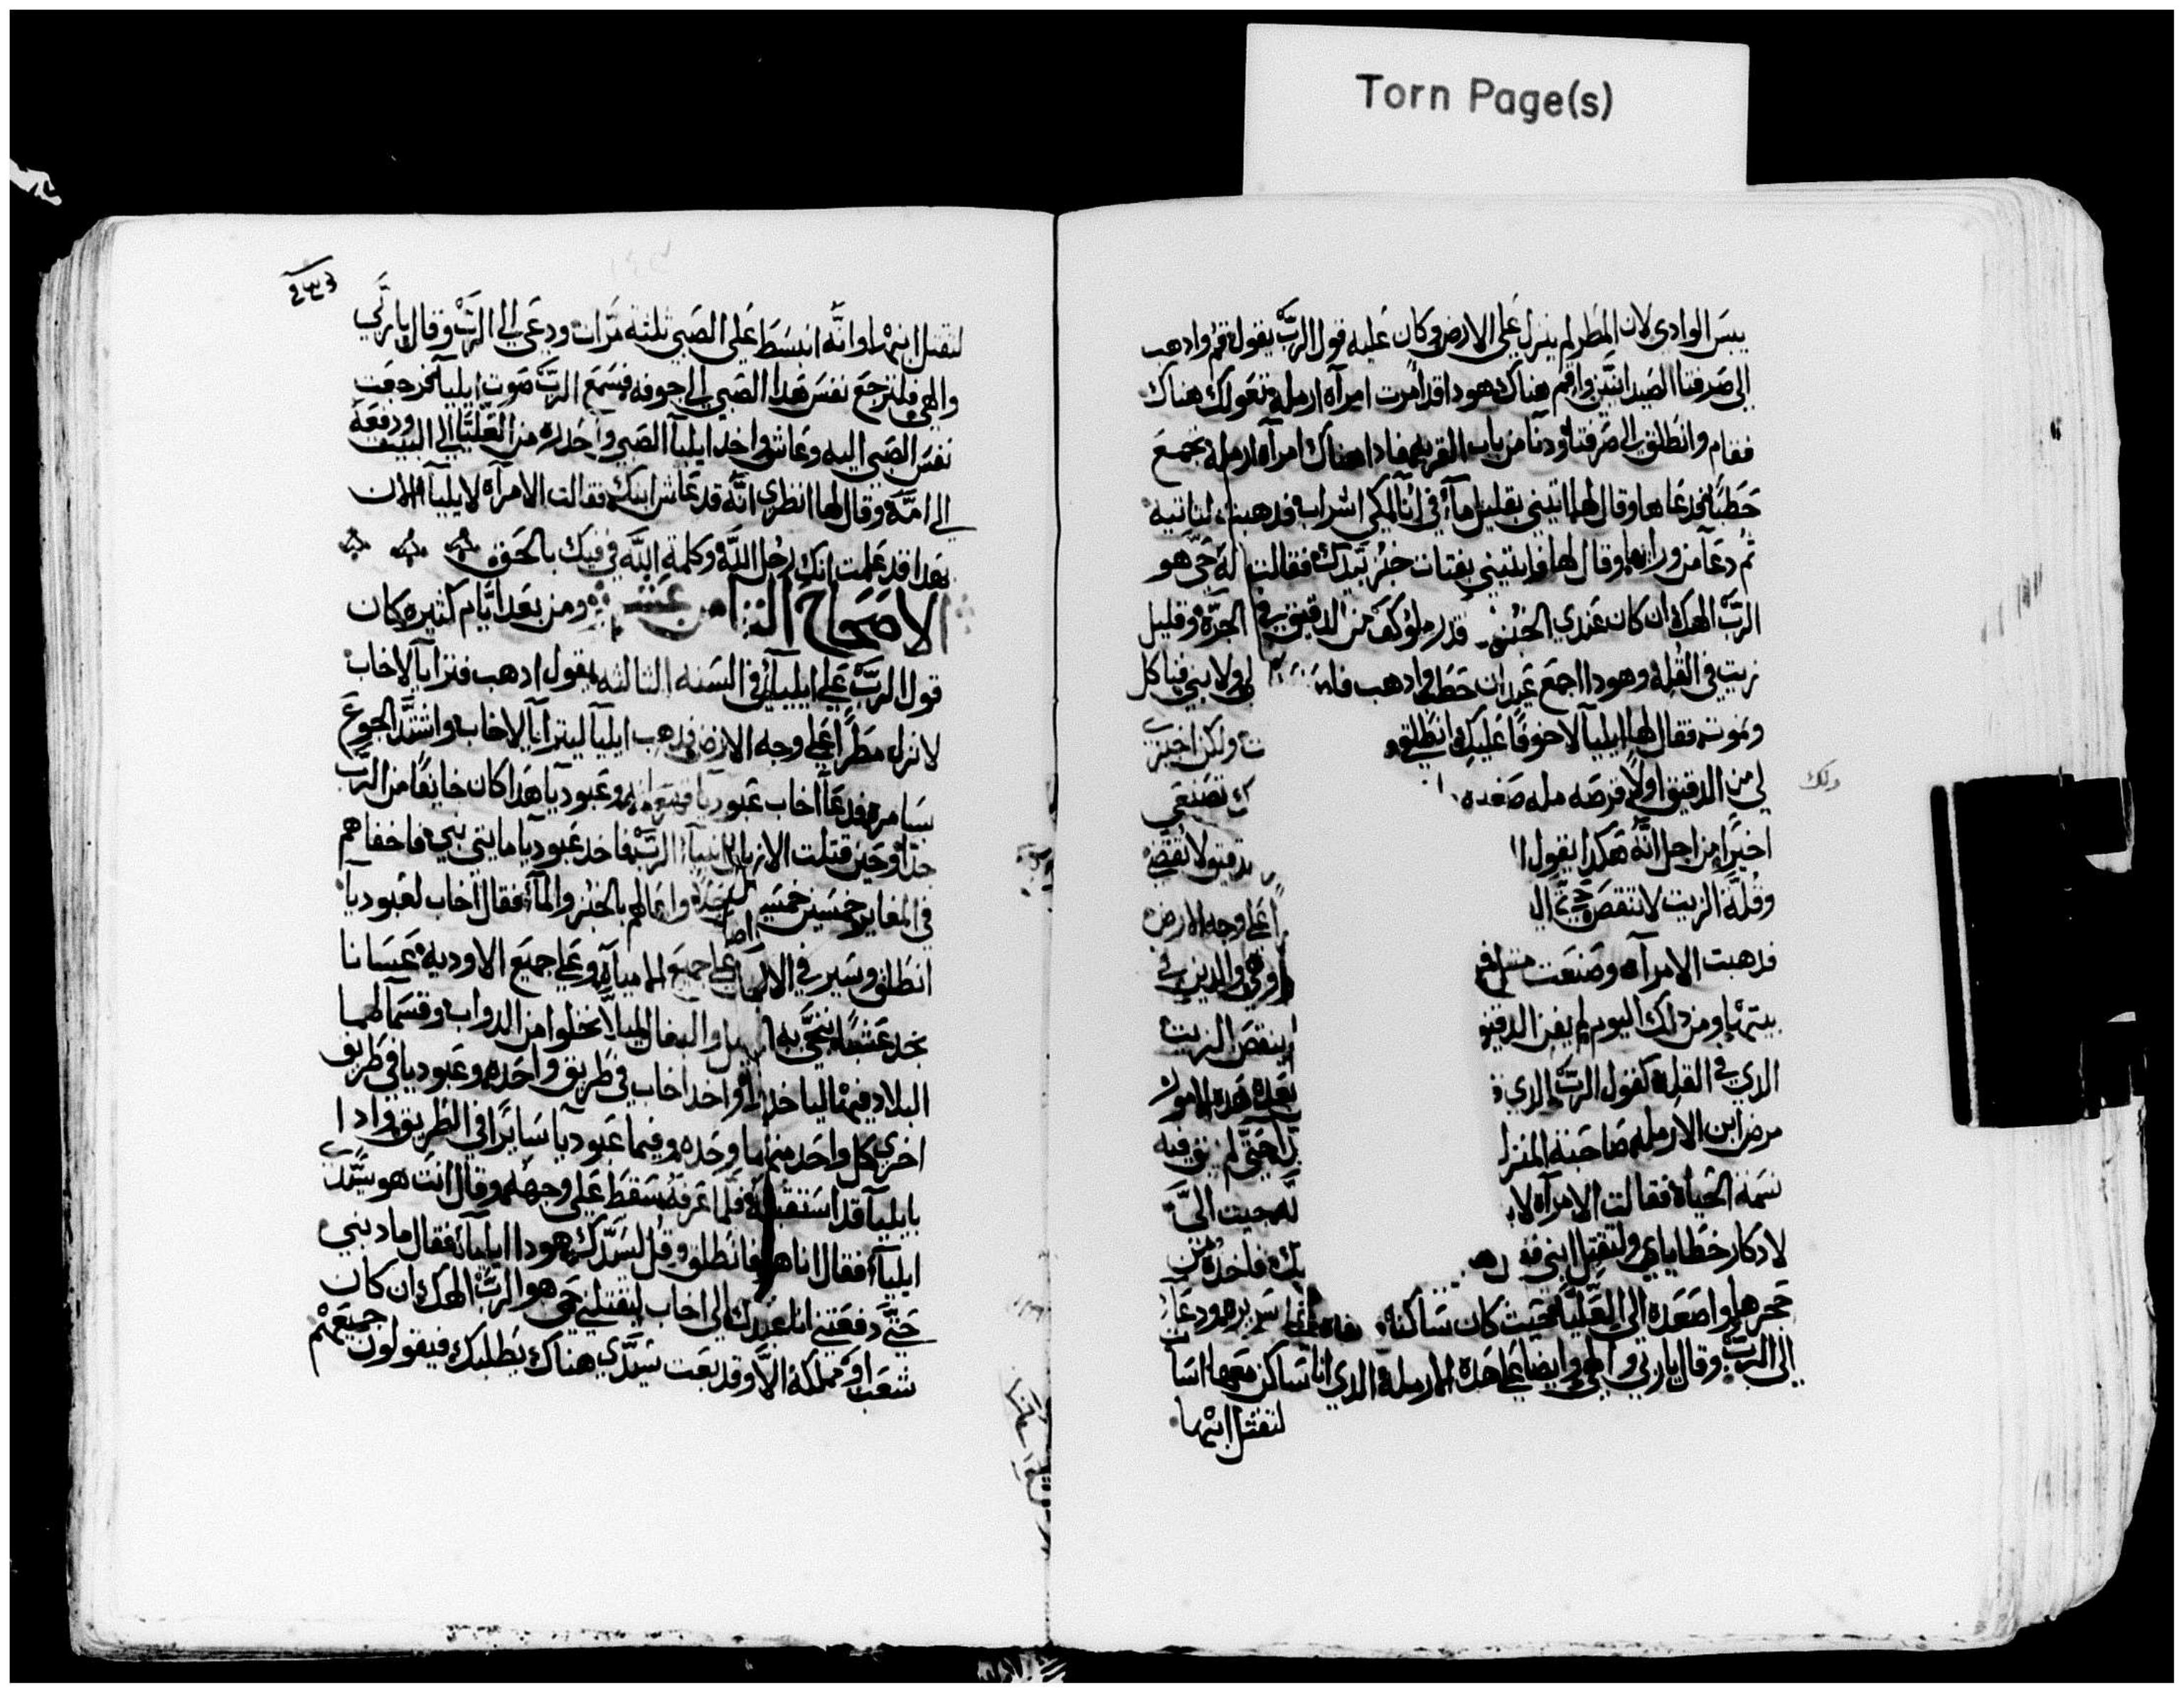 Torn Page(s)
يبس الوادي لان المطر لم ينزل علي الارض وكان عليه قول الرب يقول قم واذهب
الي صرفتا الصيدانيين واقم هناك هودا قد امرت امراه ارمله تعولك هناك
فقام وانطلق الي صرفتا ودنا من باب القريه فادا هناك امرآه ارمله تجمع
حطبًا فدعاها وقال لها اتيني بقليل مآء في انآ لكي اشراب فدهبت لتاتيه
ثم دعآ من ورائها وقال لها وايتيني بفتات خبز بيدك فقالت له حي هو
الرب الهك ان كان عندي الخبز قدر ملو كف من الدقيق في الجره وقليل
زيت في القله وهودا اجمع عيدان حطب وادهب لي ولابني فناكل
ونموت فقال لها ايليآ لا خوفًا عليك انطلقي ولكن اخبزي
لي من الدقيق اولاً قرصه مله صغيره تصنعي
دلك
اخيرًا من اجل انه هكدا يقول دقيق لا تنقص
وقلة الزيت لا تنقص حتي علي وجه الارض
فدهبت الامرآه وصنعت وهي والدين في
بيتها ومن دلك اليوم لم يفن الدقيق ينقص الزيت
الدي في القله كقول الرب الدي بعد هده الامور
مرض ابن الارمله صاحبة المنزل حتي لم يبق فيه
نسمة الحياه فقالت الامرآه لا جيت الي
لادكار خطاياي ولتقتل ابني فاخده من
حجرها واصعده الي العليه حيث كان ساكنًا سريره ودعآ
الي الرب وقال يا ربي والهي وايضا علي هده الارمله الدي انا ساكن معها اسات
لتقتل ابنها
لتقتل ابنها وانه انبسط علي الصبي ثلثه مرات ودعي الي الرب وقال يا ربي
والهي فلترجع نفس هدا الصبي الي جوفه فسمع الرب صوت ايليآ فرجعت
نفس الصبي اليه وعاش واخد ايليآ الصبي واحدره من العليه الي البيت ودفعه
الي امه وقال لها انظري انه قد عاش ابنك فقالت الامرآه لايليآ الان
بهدا قد علمت انك رجل الله وكلمة الله في فيك بالحق
الاصحاح الثامن عشر ومن بعد ايام كثيره كان
قول الرب علي ايليآ في السنه الثالثه يقول ادهب فترايآ لاخاب
لانزل مطرًا علي وجه الارض فدهب ايليآ ليترايآ لاخاب واشتد الجوع
بسامره فدعآ اخاب عبوديا وعبوديآ هدا كان خايفًا من الرب
جدًا وحين قتلت الازبل انبيآء الرب فاخد عبوديآ مايتي نبي فاخفاهم
في المغاير خمسين خمسين وعالهم بالخبز والمآء فقال اخاب لعبوديآ
انطلق وسير في الارض علي جميع المياه وعلي جميع الاوديه عسانا
نجد عشبًا ننجي به الخيل والبغال ليلا نخلوا من الدواب وقسما لهما
البلاد فيما لياخداها واخد اخاب في طريق وحده وعبوديا في طريق
اخري كل واحد منهما وحده وفيما عبوديا سايرًا في الطريق وادا
بايليآ قد استقبله فلما عرفه سقط علي وجهه وقال انت هو سيدي
ايليآ فقال انا هو فانطلق وقل لسيدك هودا ايليآ فقال ما دنبي
حتي دفعتني انا عبدك الي اخاب ليقتلني حي هو الرب الهك ان كان
شعب او مملكه الا وقد بعت سيدي هناك يطلبك فيقولون جميعهم